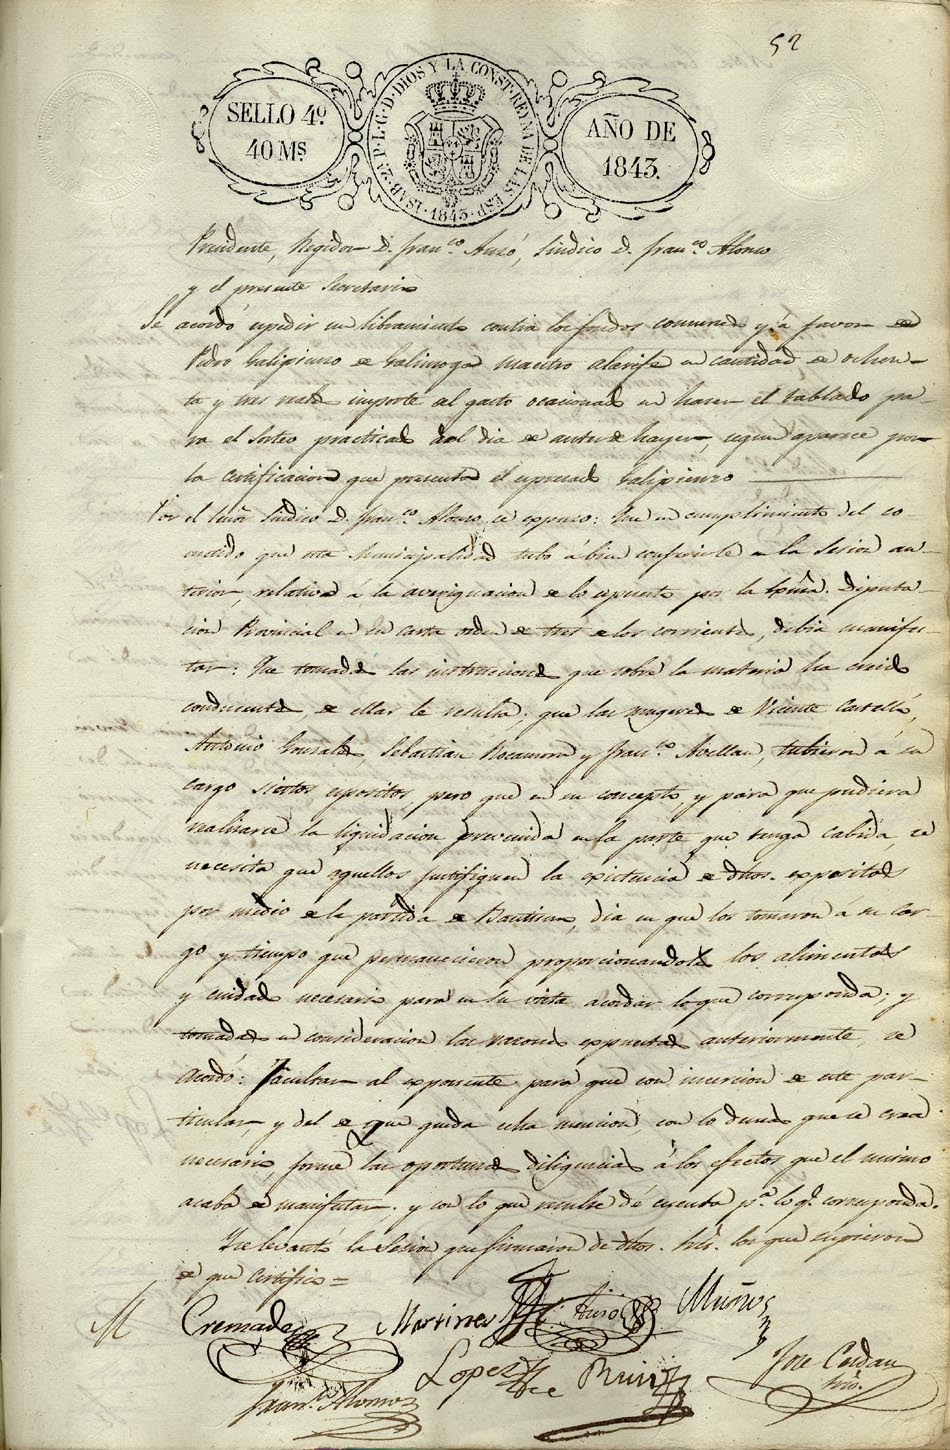 52
SELLO 4º
40 Ms
ISAB. 2ª P. L. G. D. DIOS Y LA CONST. REYNA DE LAS ESP. 1843.
AÑO DE
1843.
Presidente, Regidor D. Franco. Auzó, Sindico D. Franco. Alonso
y el presente Secretario
Se acordó espedir un libramiento contra los fondos comunes y á favor de
Pedro Galipienzo de maestro alarife en cantidad de ochen-
ta y tres reales importe al gasto ocacionado en hacer el tablado pa-
ra el Sorteo practicado del dia de antes de hayer, segun aparece por
la certificacion que presenta el espresado Galipienzo
Por el Señor Sindico D. Franco. Alonso, se espuso: Que en cumplimiento del co-
metido que esta Municipalidad tubo á bien conferirle en la Sesion an-
terior, relativa á la averiguacion de lo espuesto por la Escma. Diputa-
cion Provincial en su carta orden de tres de los corrientes, debia manifes-
tar: Que tomadas las instrucciones que sobre la materia ha creido
conducentes, de ellas le resulta: que las mugeres de Vicente Castelló,
Antonio Gonzales Sebastian Rocamora y Franco. Avellan, tubieron á su
cargo siertos espositos, pero que en su concepto, y para que pudiera
realisarce la liquidacion prevenida en la parte que tenga cabida, se
necesita que aquellos justifiquen la existencia de dhos. espositos
por medio de la partida de Bautismo, dia en que los tomaron á su car-
go y tiempo que permanecieron proporcionandoles los alimentos
y cuidado necesario para en su vista acordar lo que corresponda; y
tomadas en consideracion las razones espuestas anteriormente, se
Acordó: Facultar al esponente para que con insercion de este par-
ticular, y del de que queda echa mencion, con lo demas que se crea
necesario, forme las oportunas diligencias á los efectos que el mismo
acaba de manifestar; y con lo que resulte dé cuenta pª. lo q. corresponda.
Y se levantó la Sesion que firmaron de dhos. Srs. los que supieron
de que Certifico=
M Cremades Martinez Auzo Muños
Lopez Ruiz Jose Cerdan
Franco. Alonso Srio.